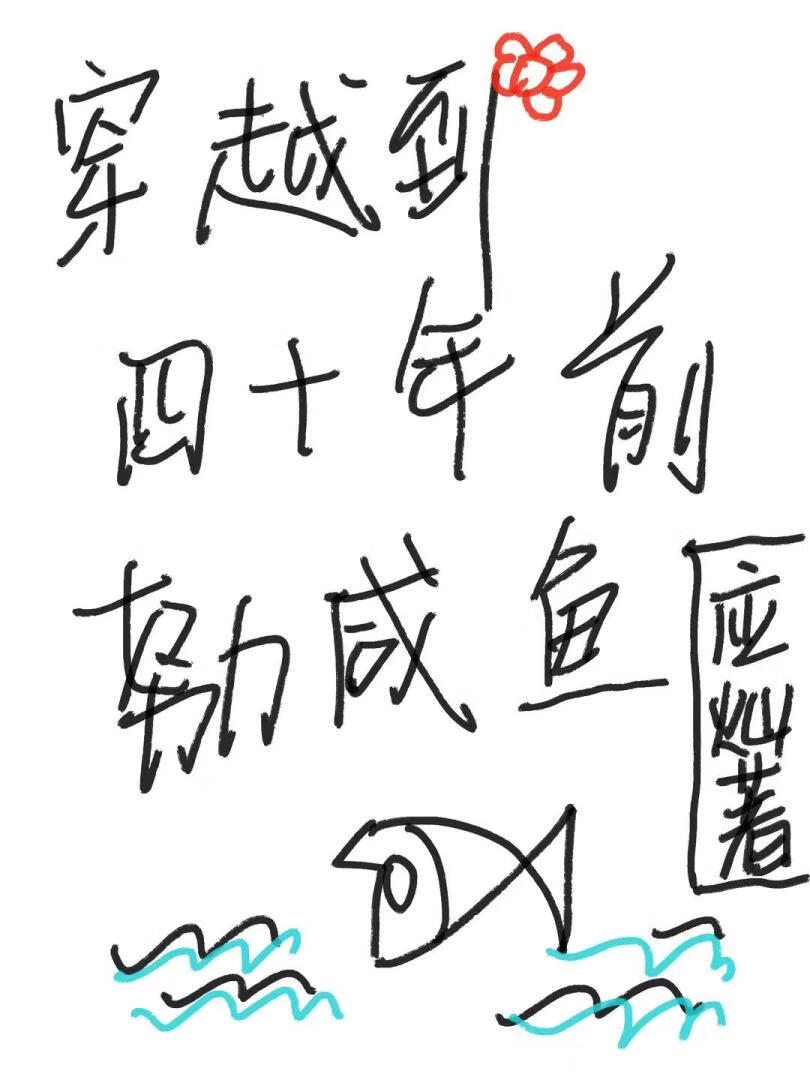 穿越到
四十年前
努力咸鱼
应灿著